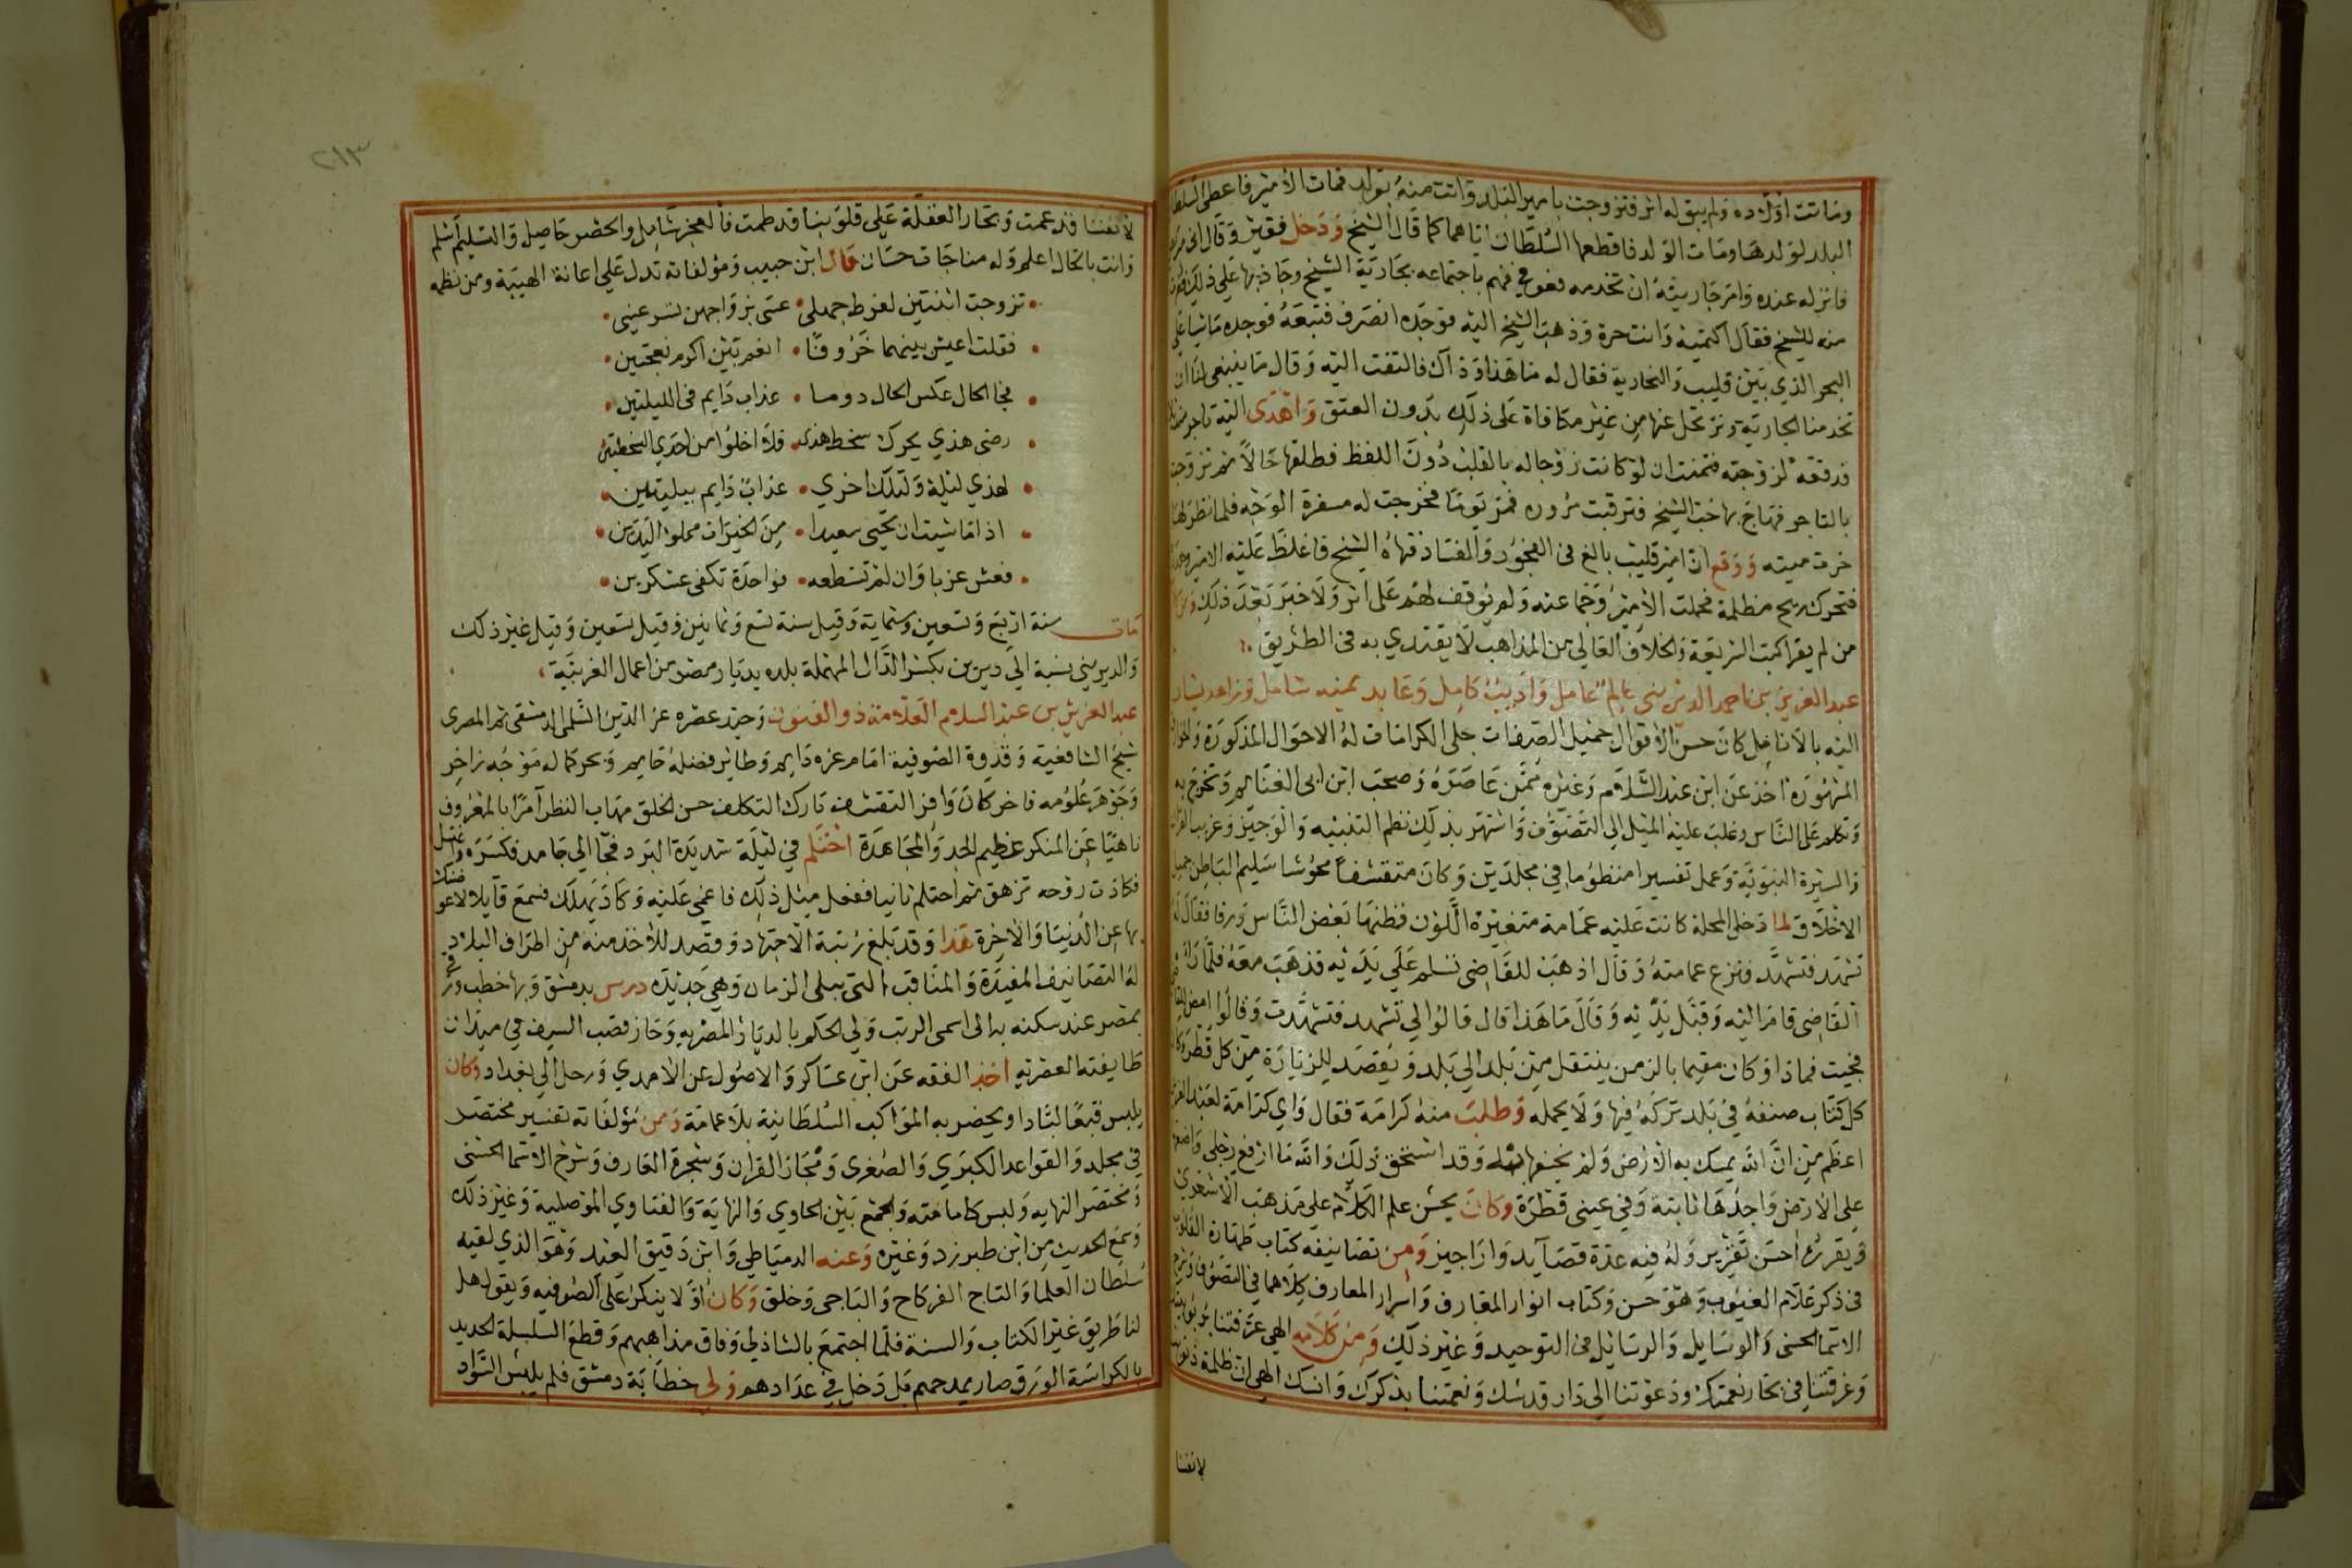 وماتت اولاده ولم يبق له اثر فتزوجت بامير البلد واتت منه بولد فمات الامير فاعطى السلطان
البلد لولدها ومات الولد فاقطعها السلطان اياهما كما قال الشيخ ودخل فقير وقال اني
فانزله عنده وامر جاريته ان تخدمه فهو باجتماعه بجارية الشيخ وجاذبها على ذلك
منه للشيخ فقال اكتميه وانت حرة وذهب الشيخ اليه فوجده انصرف فتبعه فوجده ماشيا على
البحر الذي بين قليب والنحارية فقال له ما هذا وذاك فالتفت اليه وقال ما ينبغي لنا ان
تخدمنا الجارية ونرتحل عنها من غير مكافاة على ذلك بدون العتق واهدى اليه تاجر
فدفعه لزوجته فتمنت ان لو كانت زوجا له بالقلب دون اللفظ فطلقها حالا ثم تزوجت
بالتاجر فهاج بها حب الشيخ فترقبت مروره فمر يوما فخرجت له مسفرة الوجه فلما نظر لها
خرت ميته ووقع ان امير قليب بالغ في الفجور والفساد فنهاه الشيخ فاغلظ عليه الامير
فتحرك ريح مظلمة فحملت الامير وجماعته ولم يوقف لهم على اثر ولا خبر بعد ذلك
من لم يقرا كتب الشريعة والخلاف العالي من المذاهب لا يقتدي به في الطريق
عبد العزيز بن احمد الديريني عالم عامل واديب كامل وعابد يمنه شامل وزاهد يشار
اليه بالانامل كان حسن الاقوال جميل الصفات جلي الكرامات له الاحوال المذكورة
المشهورة اخذ عن ابن عبد السلام وغيره ممن عاصره وصحب ابن ابي الغنايم وتخرج به
وتكلم على الناس وغلب عليه الميل الى التصوف واشتهر بذلك نظم التنبيه والوجيز وغريب القران
والسيرة النبوية وعمل تفسيرا منظوما في مجلدين وكان متقشفا مخوشا سليم الباطن جميل
الاخلاق لما دخل المحلة كانت عليه عمامة متغيرة اللون فظنها بعض الناس زرقا فقال له
تشهد فتشهد فنزع عمامته وقال اذهب للقاضي نسلم على يديه فذهب معه فلما راه
القاضي قام اليه وقبل يديه وقال ما هذا قال قالوا لي تشهد فتشهدت وقالوا امض
فجيت فماذا وكان مقيما بالزمن ينتقل من بلد الى بلد ويقصد للزيارة من كل قطر وكان
كل كتاب صنفه في بلد تركه فيها ولا يحمله وطلبت منه كرامة فقال واي كرامة لعبد العزيز
اعظم من ان الله يمسك به الارض ولم يخسفها به وقد استحق ذلك والله ما ارفع رجلي واضعها
على الارض واجدها ثابتة وفي عيني قطرة وكان يحسن علم الكلام على مذهب الاشعري
ويقرره احسن تقرير وله فيه عدة قصايد واراجيز ومن تصانيفه كتاب طهارة القلوب
في ذكر علام الغيوب وهو حسن وكتاب انوار المعارف واسرار المعارف كلاهما في التصوف وشرح
الاسما الحسنى والوسايل والرسايل في التوحيد وغير ذلك ومن كلامه الهي عرفتنا بربوبيتك
وغرقتنا في بحار نعمتك ودعوتنا الى دار قدسك ونعمتنا بذكرك وانسك الهي ان ظلمة ذنوبنا
لانفسنا
٢١٣
لانفسنا قد عمت وبحار الغفلة على قلوبنا قد طمت فالعجز شامل والحصر حاصل والتسليم اسلم
وانت بالحال اعلم وله مناجات حسان قال ابن حبيب ومؤلفاته تدل على اعانة الهيبة ومن نظمه
تزوجت اثنتين لفرط جهلي • عسى بزواجهن تسر عيني
فقلت اعيش بينهما خروفا • انعم بين اكرم نعجتين
فجا الحال عكس الحال دوما • عذاب دايم في الليلتين
رضى هذي يحرك سخط هذي • فلا اخلوا من احدي السخطتين
لهذي ليلة ولتلك اخري • عذاب دايم ببليتين
اذا ما شيت ان تحيى سعيدا • من الخيرات مملوا اليدين
فعش عزبا وان لم تستطعه • فواحدة تكفي عسكرين
مات سنة اربع وتسعين وستماية وقيل سنة تسع وثمانين وقيل تسعين وقيل غير ذلك
والديريني نسبة الى ديرين بكسر الدال المهملة بلدة بديار مصر من اعمال الغربية
عبد العزيز بن عبد السلام العلامة ذو الفنون وحيد عصره عز الدين السلمي الدمشقي ثم المصري
شيخ الشافعية وقدوة الصوفية امام عزه دايم وطاير فضله حايم وبحر كماله موجه زاخر
وجوهر علومه فاخر كان وافر التقشف تارك التكلف حسن الخلق مهاب النظر آمرا بالمعروف
ناهيا عن المنكر عظيم الجد والمجاهدة احتلم في ليلة شديدة البرد فجا الى جامد فكسره واغتسل
فكادت روحه تزهق ثم احتلم ثانيا ففعل مثل ذلك فاغمي عليه وكاد يهلك فسمع قايلا لاعوضنك
بها عز الدنيا والاخرة هذا وقد بلغ رتبة الاجتهاد وقصد للاخذ منه من اطراف البلاد
له التصانيف المفيدة والمناقب التي تبلى الزمان وهي جديدة درس بدمشق وبها خطب ورقى
بمصر عند سكنه بها الى اسمى الرتب وولي الحكم بالديار المصرية وحاز قصب السبق في ميدان
طايفته العصرية اخذ الفقه عن ابن عساكر والاصول عن الامدي ورحل الى بغداد وكان
يلبس قبعا لبادا ويحضر به المواكب السلطانية بلا عمامة ومن مؤلفاته تفسير مختصر
في مجلد والقواعد الكبري والصغرى ومجاز القران وشجرة المعارف وشرح الاسما الحسنى
ومختصر النهايه وليس كامامته والجمع بين الحاوي والنهاية والفتاوي الموصلية وغير ذلك
وسمع الحديث من ابن طبرزد وغيره وعنه الدمياطي وابن دقيق العيد وهو الذي لقبه
سلطان العلما والتاج الفركاح والباجي وخلق وكان اولا ينكر على الصوفيه ويقول هل
لنا طريق غير الكتاب والسنة فلما اجتمع بالشاذلي وذاق مذاهبهم وقطع السلسلة الحديد
بالكراسة الورق صار يمدحهم بل دخل في عدادهم وولي خطابة دمشق فلم يلبس السواد